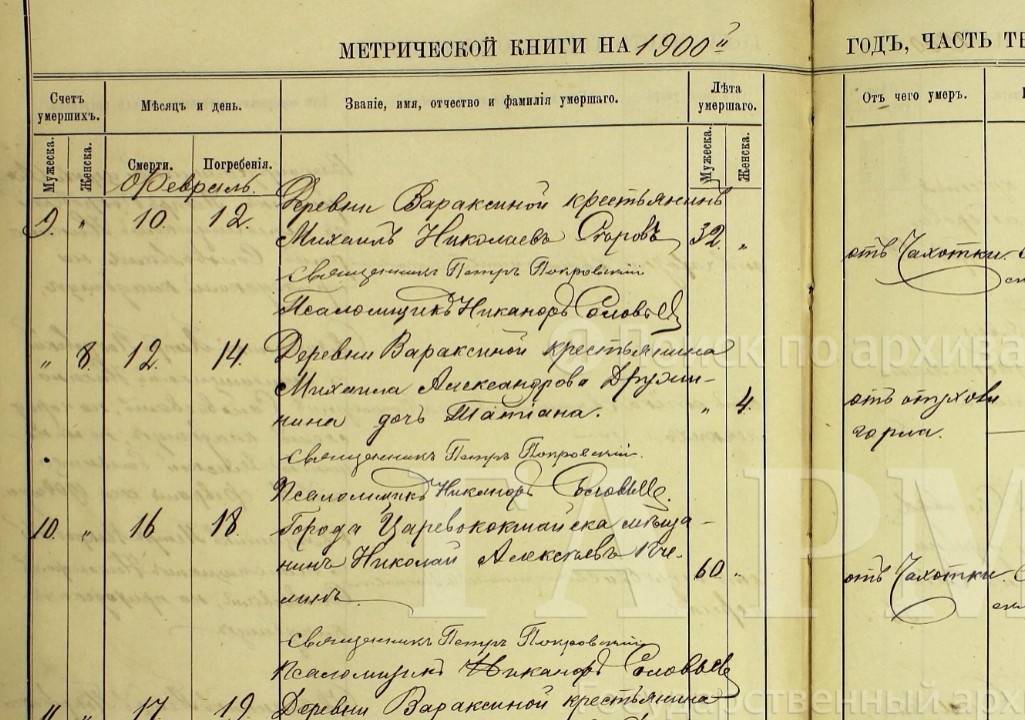 МЕТРИЧЕСКОЙ КНИГИ НА 1900 й
ГОДЪ, ЧАСТЬ ТЕ
Счетъ умершихъ.
Мѣсяцъ и день.
Званіе, имя, отчество и фамилія умершаго.
Лѣта умершаго.
Отъ чего умеръ.
Мужеска.
Женска.
Смерти.
Погребенія.
Мужеска.
Женска.
Февраль.
9. " 10. 12. Деревни Вараксиной крестьянинъ
Михаилъ Николаевъ 32. "
отъ Чахотки.
Священникъ Петръ Покровскій
Псаломщикъ Никаноръ Соловьевъ
" 8. 12. 14. Деревни Вараксиной крестьянина
Михаила Александрова Дружи-
нина дочь Татіана. " 4.
отъ опухоли
горла.
Священникъ Петръ Покровскій.
Псаломщикъ Никаноръ Соловьевъ.
10. " 16 18. Города Царевококшайска мѣща-
нинъ Николай Алексѣевъ
линъ. 60 "
отъ Чахотки.
Священникъ Петръ Покровскій
Псаломщикъ Никаноръ Соловьевъ
" " 17. 19. Деревни Вараксиной крестьянина
ск по архива
ГАРМ
государственный арх